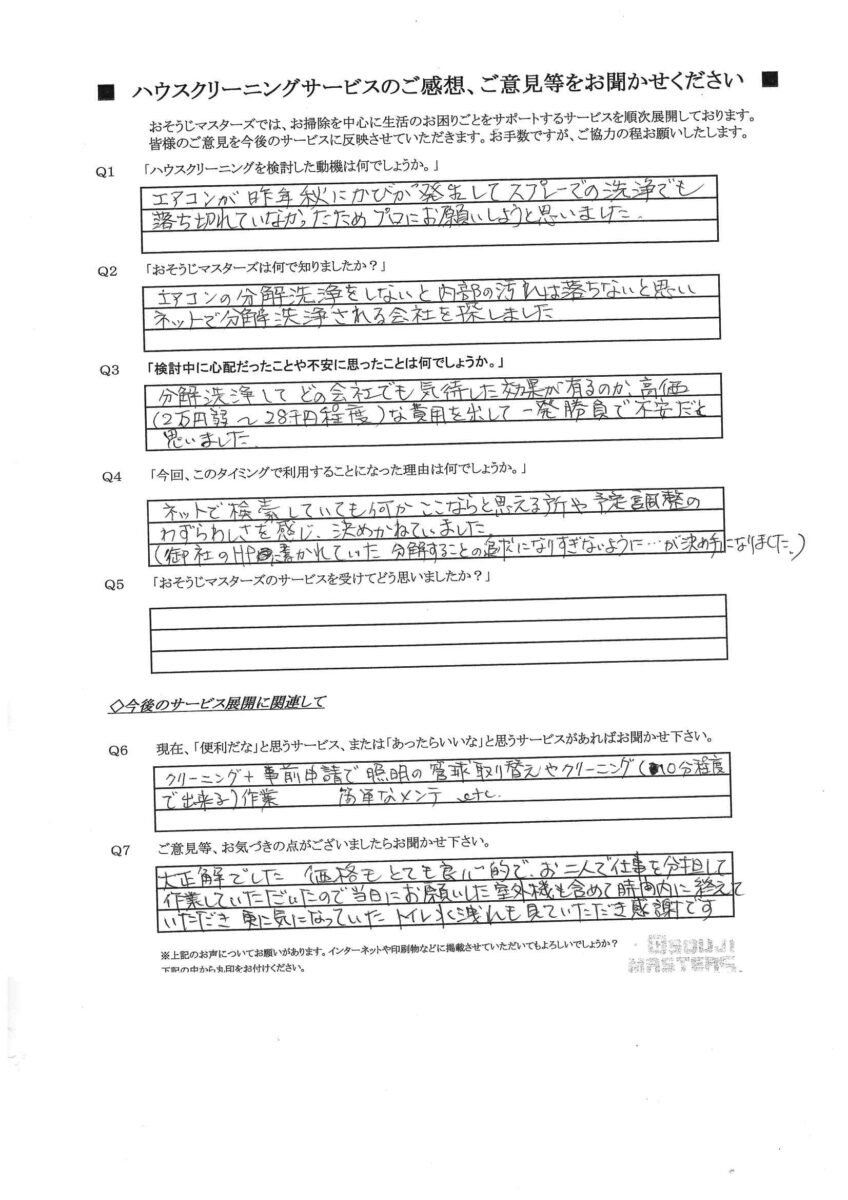 ■ ハウスクリーニングサービスのご感想、ご意見等をお聞かせください ■
おそうじマスターズでは、お掃除を中心に生活のお困りごとをサポートするサービスを順次展開しております。
皆様のご意見を今後のサービスに反映させていただきます。お手数ですが、ご協力の程お願いしたします。
Q1 「ハウスクリーニングを検討した動機は何でしょうか。」
エアコンが昨年秋にかびが発生してスプレーでの洗浄でも
落ち切れていなかったためプロにお願いしようと思いました。
Q2 「おそうじマスターズは何で知りましたか？」
エアコンの分解洗浄をしないと内部の汚れは落ちないと思い
ネットで分解洗浄される会社を探しました
Q3 「検討中に心配だったことや不安に思ったことは何でしょうか。」
分解洗浄してどの会社でも気待した効果が有るのか高価
(2万円弱～28千円程度)な費用を出して一発勝負で不安だと
思いました
Q4 「今回、このタイミングで利用することになった理由は何でしょうか。」
ネットで検索していても何かここならと思える所や予定調整の
わずらわしさを感じ、決めかねていました
(御社のHPに書かれていた分解することの追求になりすぎないように…が決め手になりました。)
Q5 「おそうじマスターズのサービスを受けてどう思いましたか？」
◇今後のサービス展開に関連して
Q6 現在、「便利だな」と思うサービス、または「あったらいいな」と思うサービスがあればお聞かせ下さい。
クリーニング+事前申請で照明の管球取り替えやクリーニング(10分程度
で出来る)作業 簡単なメンテ etc.
Q7 ご意見等、お気づきの点がございましたらお聞かせ下さい。
大正解でした 価格もとても良心的で、お二人で仕事を分担して
作業していただいたので当日にお願いした室外機も含めて時間内に終えて
いただき 更に気になっていたトイレ水洩れも見ていただき感謝です
※上記のお声についてお願いがあります。インターネットや印刷物などに掲載させていただいてもよろしいでしょうか？
下記の中から丸印をお付けください。